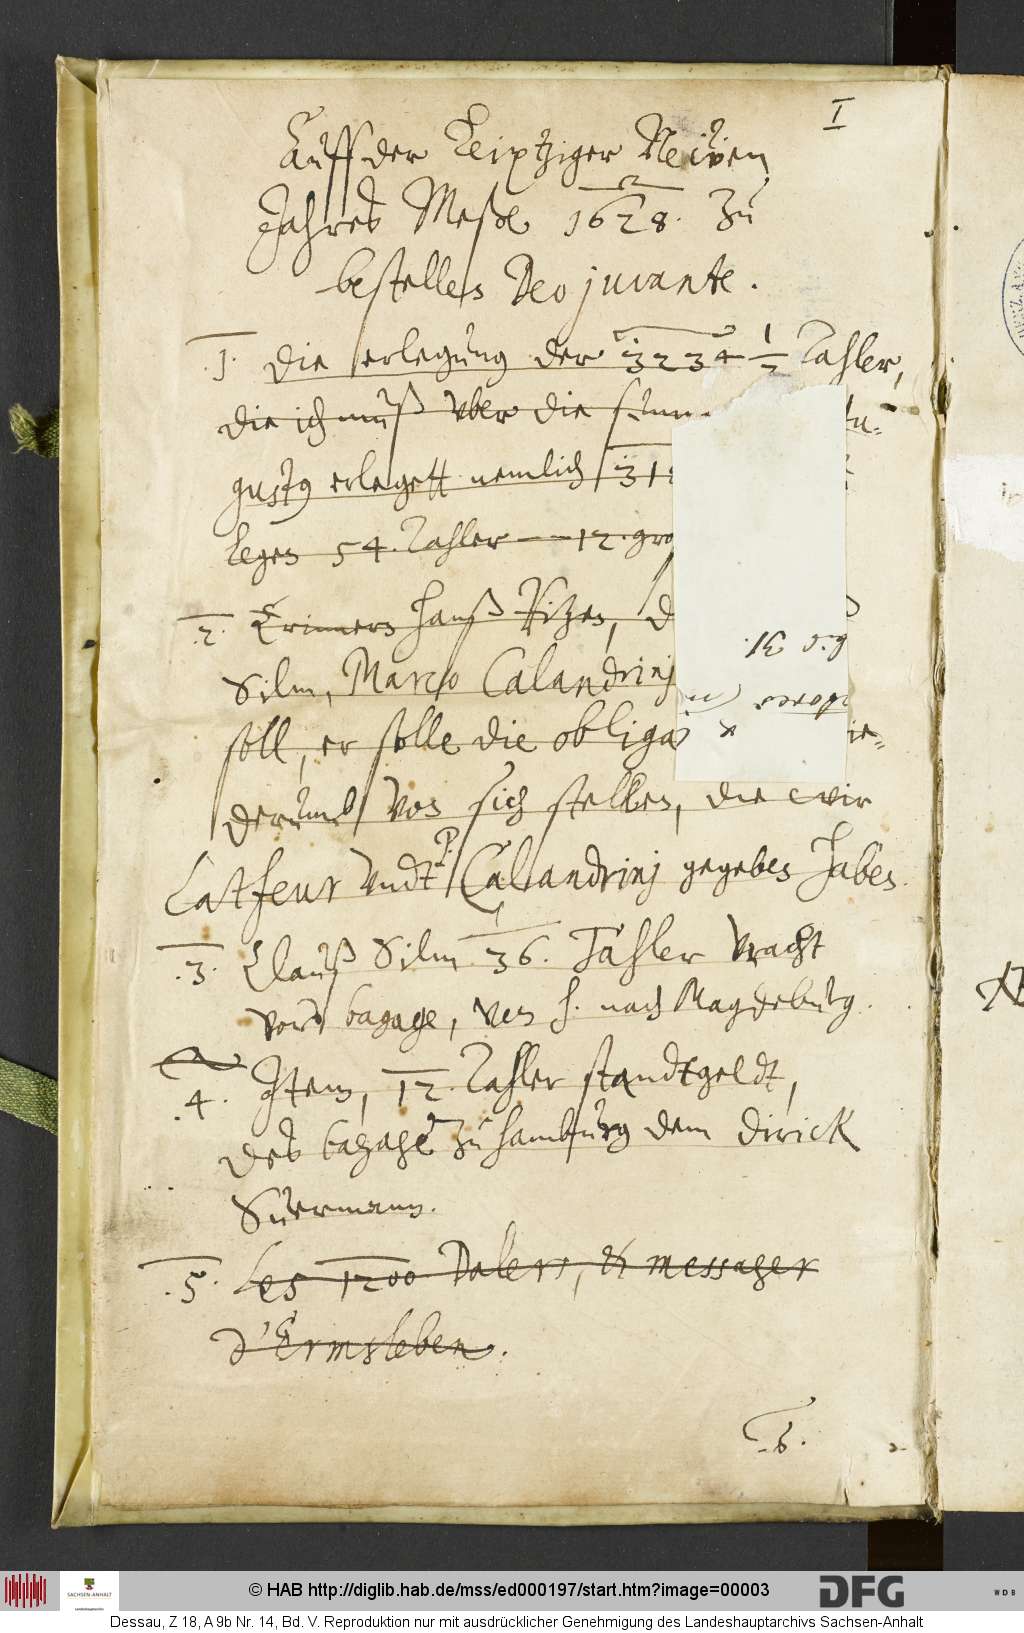 I
Auff der Leiptziger Neẅen
Jahres Meße 1628. zu
bestellen Deo juvante.
1. Die erlegung der 3234 ½ Tahler,
die ich muß vber die summ
gusty erlegett nemlich 31
legen 54. Tahler — 12. gro
2. Erinnern Hanß D
Silm, Marco Calandrinj
soll, er solle die obliga ie=
derumb von sich stellen, die wir
Latfeur vndt P. Calandrinj gegeben haben.
3. Clauß Silm 36. Tahler vracht
vor bagage, von H. nach Magdeburg.
4. Item, 12. Tahler standtgeldt,
der bagage zu Hamburg dem Dirick
Suermann.
5. Les 1200 Dalers, & messager
d'Ermsleben.
6.
© HAB http://diglib.hab.de/mss/ed000197/start.htm?image=00003
SACHSEN-ANHALT
DFG
WDB
Dessau, Z 18, A 9b Nr. 14, Bd. V. Reproduktion nur mit ausdrücklicher Genehmigung des Landeshauptarchivs Sachsen-Anhalt